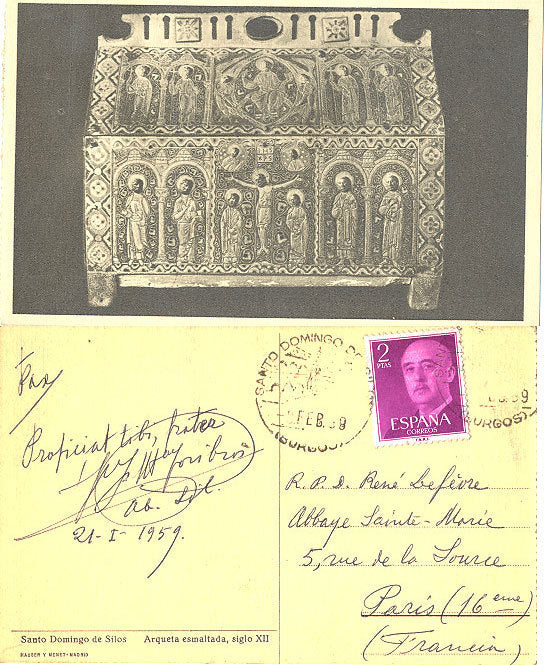 Pax
Propiciat tibi, frater
Ab. Sil.
21-I-1959.
Santo Domingo de Silos Arqueta esmaltada, siglo XII
HAUSER Y MENET-MADRID
SANTO DOMINGO DE
FEB. 59
(BURGOS)
2
PTAS
ESPAÑA
CORREOS
R. P. D. René Lefévre
Abbaye Sainte-Marie
5, rue de la Source
París (16 eme)
(Francia)